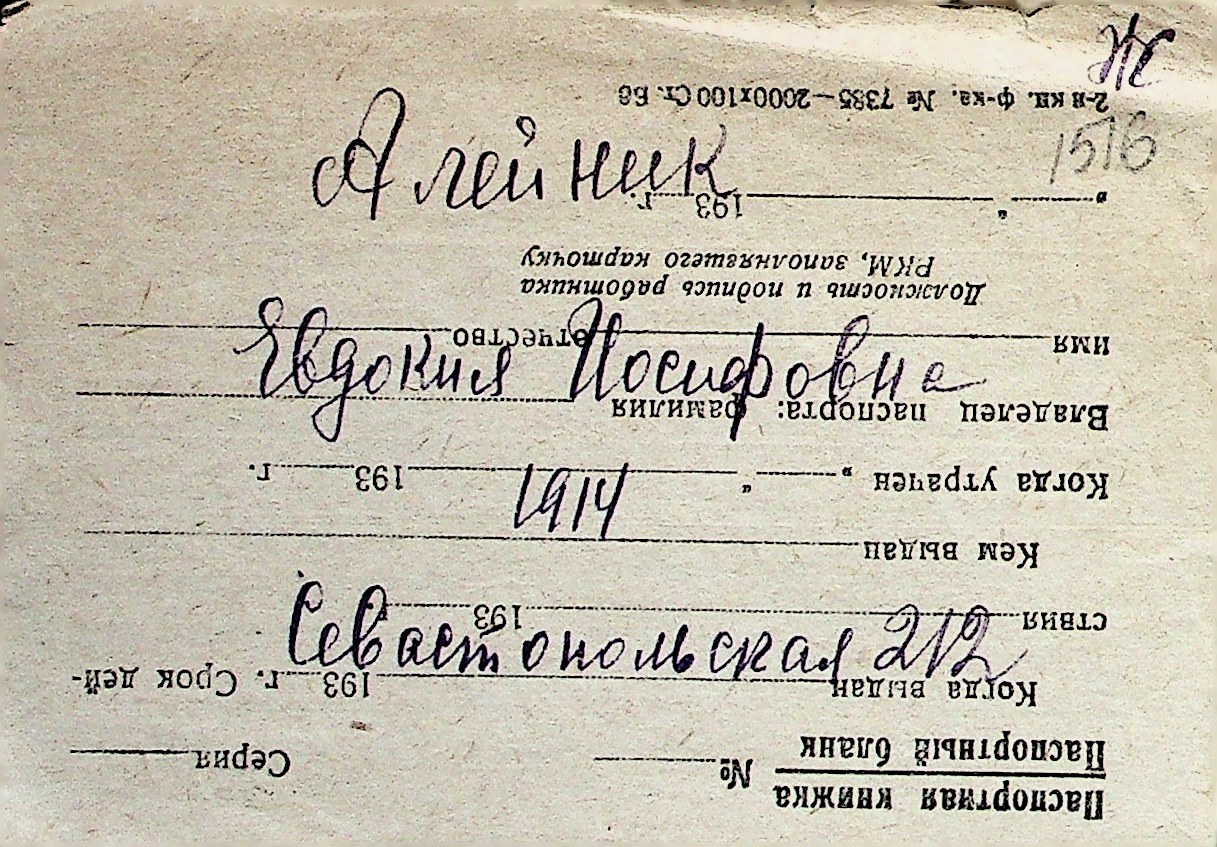 Ж
1516
Алейник
Евдокия Иосифовна
1914
Севастопольская 212
Паспортная книжка
Паспортный бланк № Серия
Когда выдан 193 г. Срок дей-
ствия 193
Кем выдан
Когда утрачен „ “ 193 г.
Владелец паспорта: фамилия
имя отчество
Должность и подпись работника
РКМ, заполнявшего карточку
„ “ 193 г.
2-я кн. ф-ка. № 7385—2000х100 Ст.